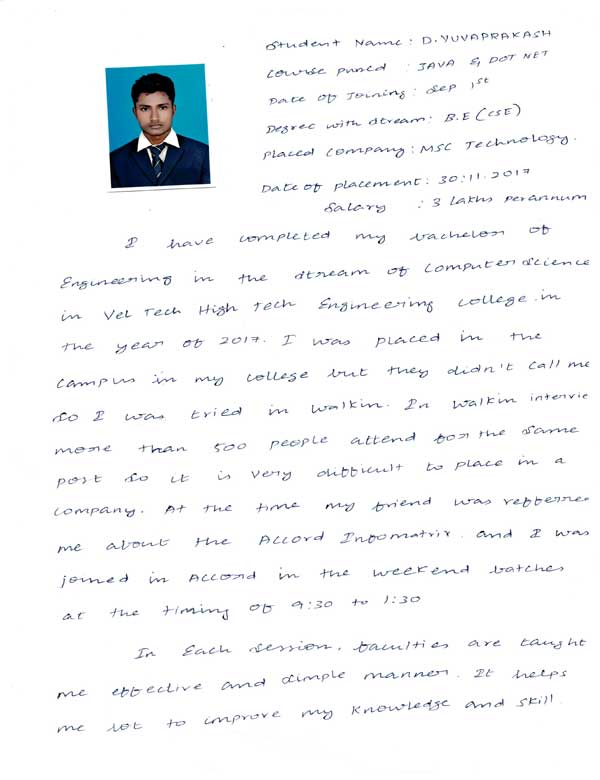 Student Name : D.YUVAPRAKASH
Course Pursed : JAVA & DOT NET
Date of Joining : Sep 1st
Degree with stream : B.E (CSE)
Placed Company : MSC Technology.
Date of placement : 30.11.2017
Salary : 3 Lakhs Perannum
I have completed my bachelor of
Engineering in the stream of Computer Science
in Vel Tech High Tech Engineering college in
the year of 2017. I was placed in the
campus in my college but they didn't call me
So I was tried in walkin. In walkin intervie
more than 500 people attend for the same
post so it is very difficult to place in a
company. At the time my friend was refferre
me about the Accord Infomatrix. and I was
joined in Accord in the weekend batches
at the timing of 9:30 to 1:30
In Each session, faculties are taught
me effective and simple manner. It helps
me lot to improve my knowledge and skill.